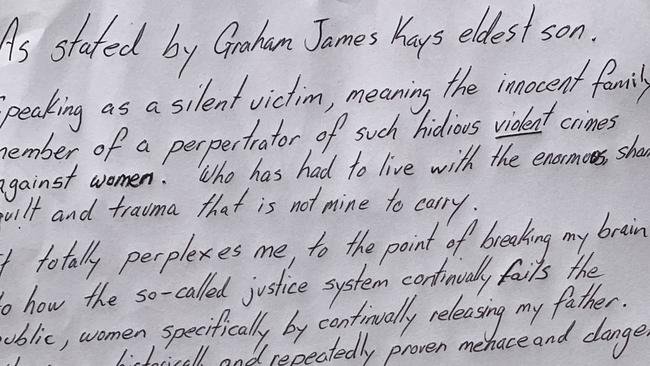 As stated by Graham James Kays eldest son.
speaking as a silent victim, meaning the innocent family
member of a perpertrator of such hidious violent crimes
against women. Who has had to live with the enormous, sham
guilt and trauma that is not mine to carry.
It totally perplexes me, to the point of breaking my brain
to how the so-called justice system continually fails the
public, women specifically by continually releasing my father.
historically and repeatedly proven menace and danger